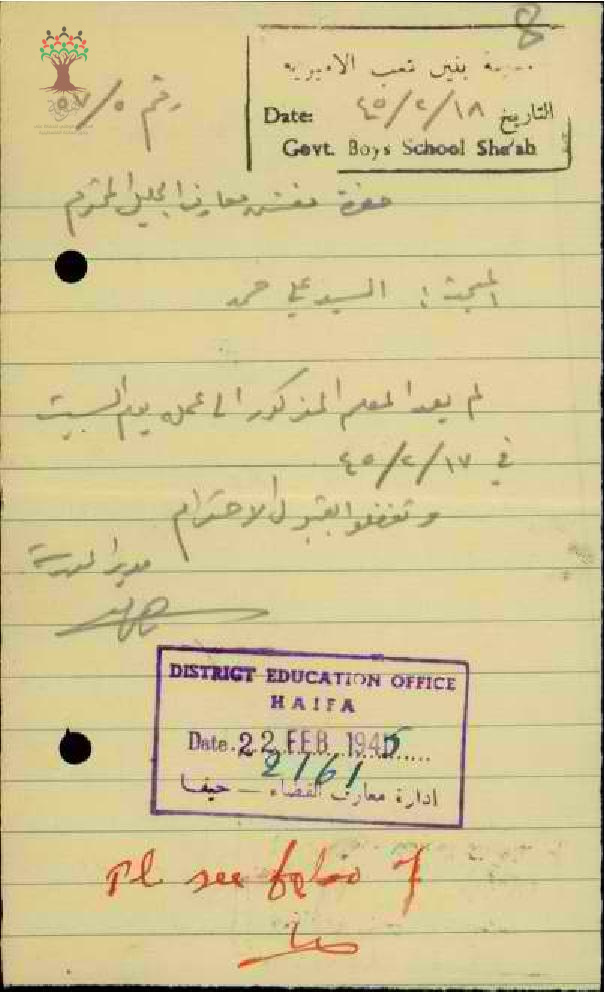 8
بنين شعب الاميرية
Date: ٤٥/٢/١٨ التاريخ
Govt. Boys School Sha'ab
رقم ٥٧/٥
حضرة مفتش معارف الجليل المحترم
المبحث : السيد علي حمد
لم يعد المعلم المذكور الى عمله يوم السبت
في ٤٥/٢/١٧
وتفضلوا بقبول الاحترام
مدير المدرسة
DISTRICT EDUCATION OFFICE
HAIFA
Date. 22 FEB 1945
2161
ادارة معارف القضاء — حيفا
Pl. see folio 7